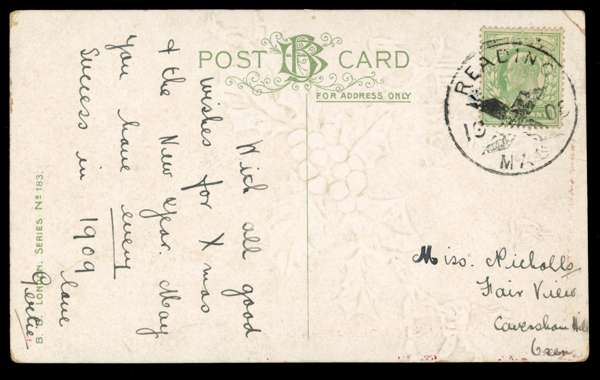 POST CARD
FOR ADDRESS ONLY
READING
MR
With all good
wishes for X mas
& the New Year. May
you have every
Success in 1909
love
Gertie
Miss. Nicholls
Fair View
Caversham
Oxon
B. B. LONDON, SERIES No 183.